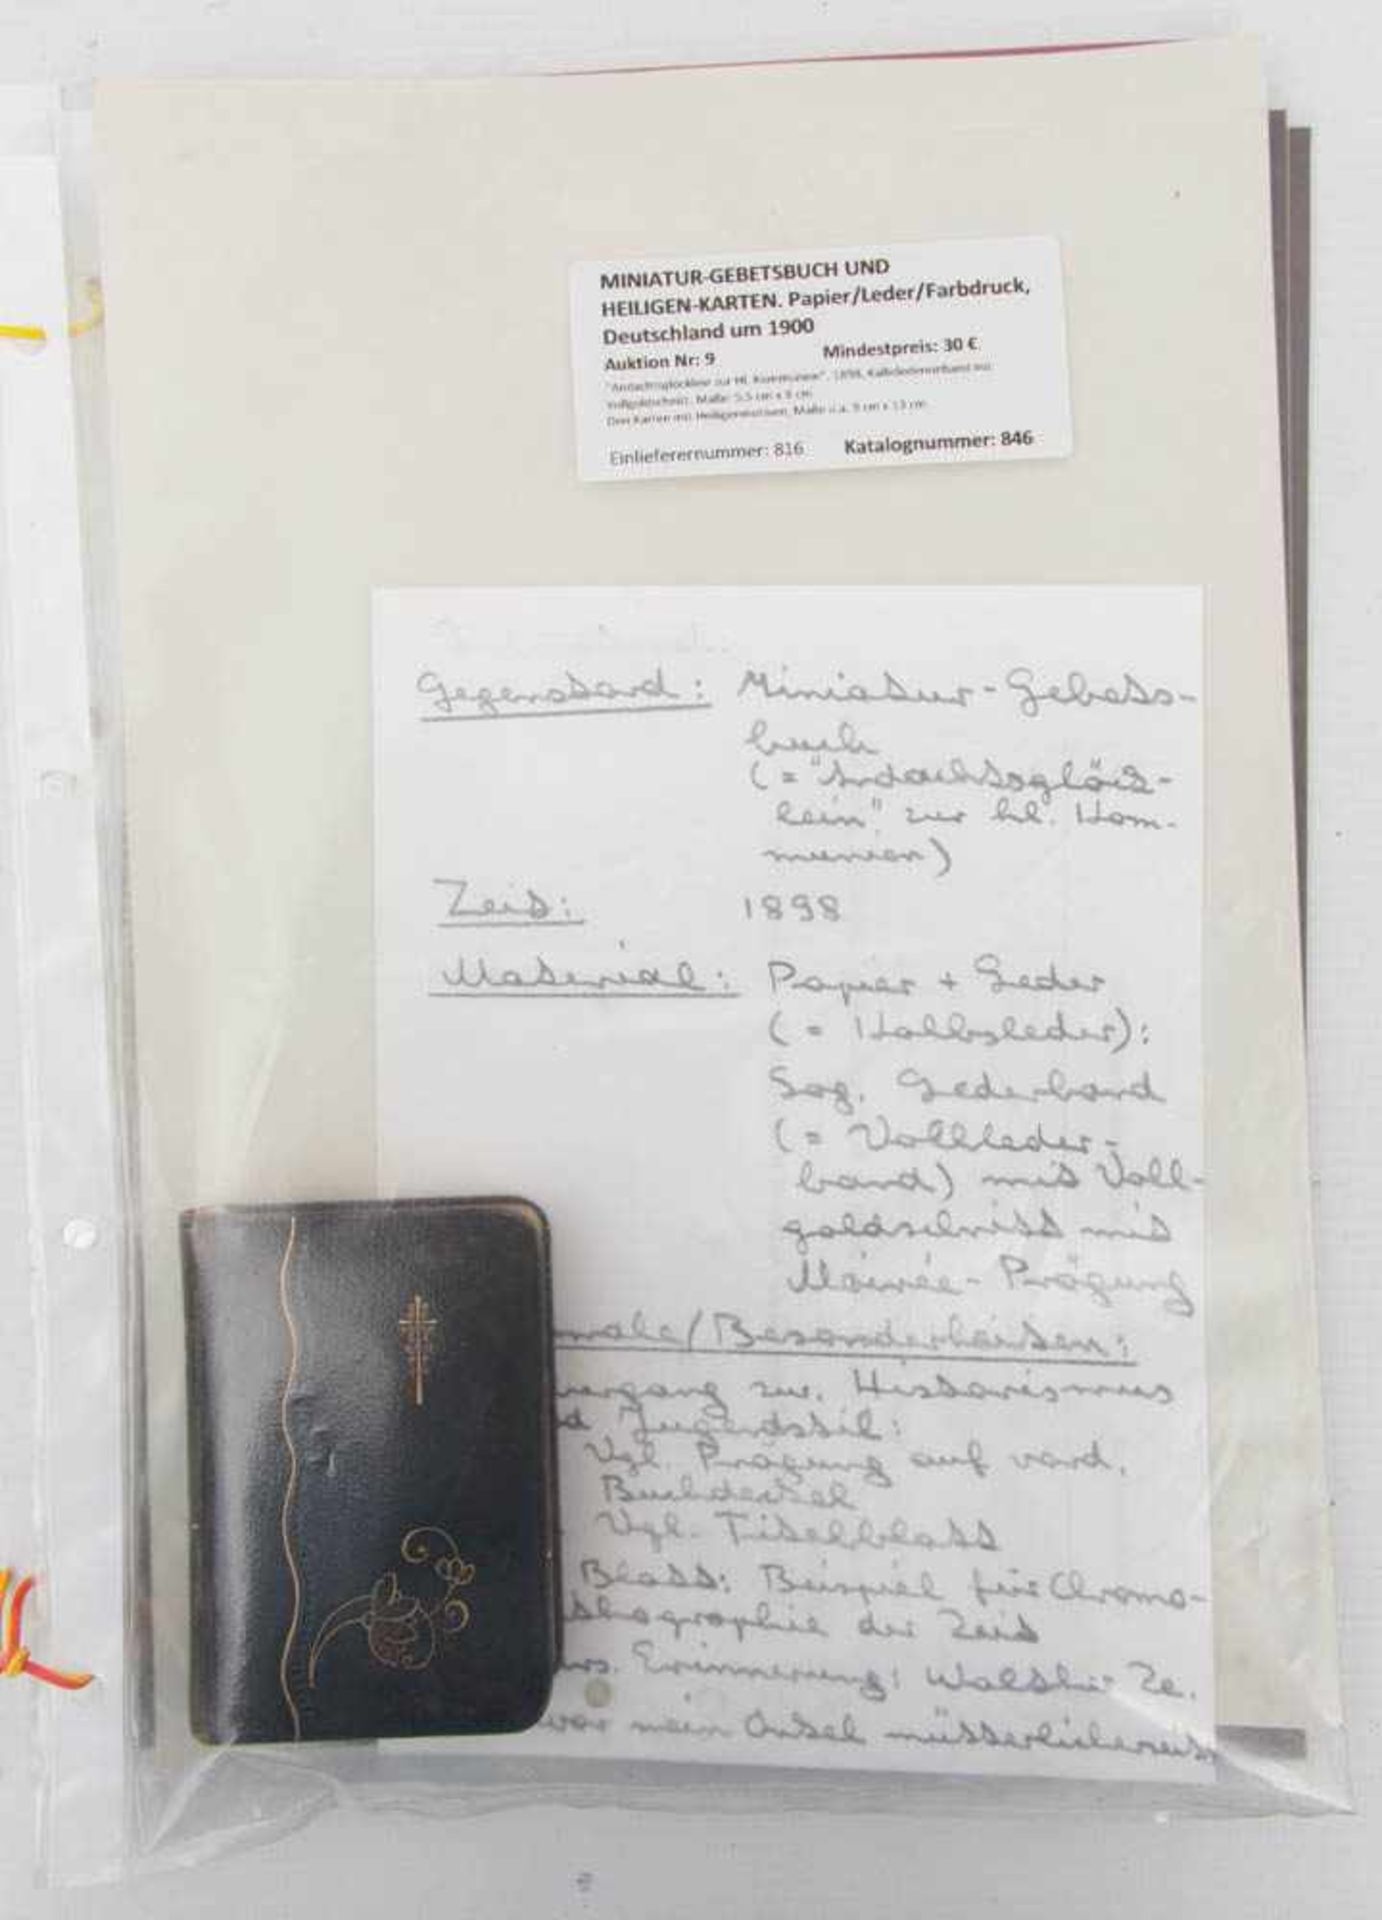 MINIATUR-GEBETSBUCH UND
HEILIGEN-KARTEN. Papier/Leder/Farbdruck,
Deutschland um 1900
Auktion Nr: 9 Mindestpreis: 30 €
"Andachtsglöcklein zur Hl. Kommunion", 1898, Kalbslederneinband mit
Vollgoldschnitt. Maße: 5,5 cm x 8 cm
Drei Karten mit Heiligenmotiven, Maße u.a. 9 cm x 13 cm
Einlieferernummer: 816 Katalognummer: 846
Gegenstand: Miniatur-Gebets-
buch
(= "Andachtsglöck-
lein" zur hl. Kom-
munion)
Zeit: 1898
Material: Papier + Leder
(= Kalbsleder):
Sog. Lederband
(= Vollleder-
band) mit Voll-
goldschnitt mit
Moirée-Prägung
male/Besonderheiten:
ergang zw. Historismus
d Jugendstil:
Vgl. Prägung auf vord.
Buchdeckel
Vgl. Titelblatt
Blatt: Beispiel für Chromo-
thographie der Zeit
rs. Erinnerung: Walthir Ze.
war mein Onkel mütterlicherseits